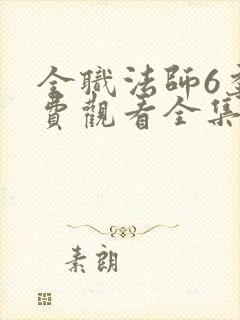 全職法師6
費觀看全集
素朗